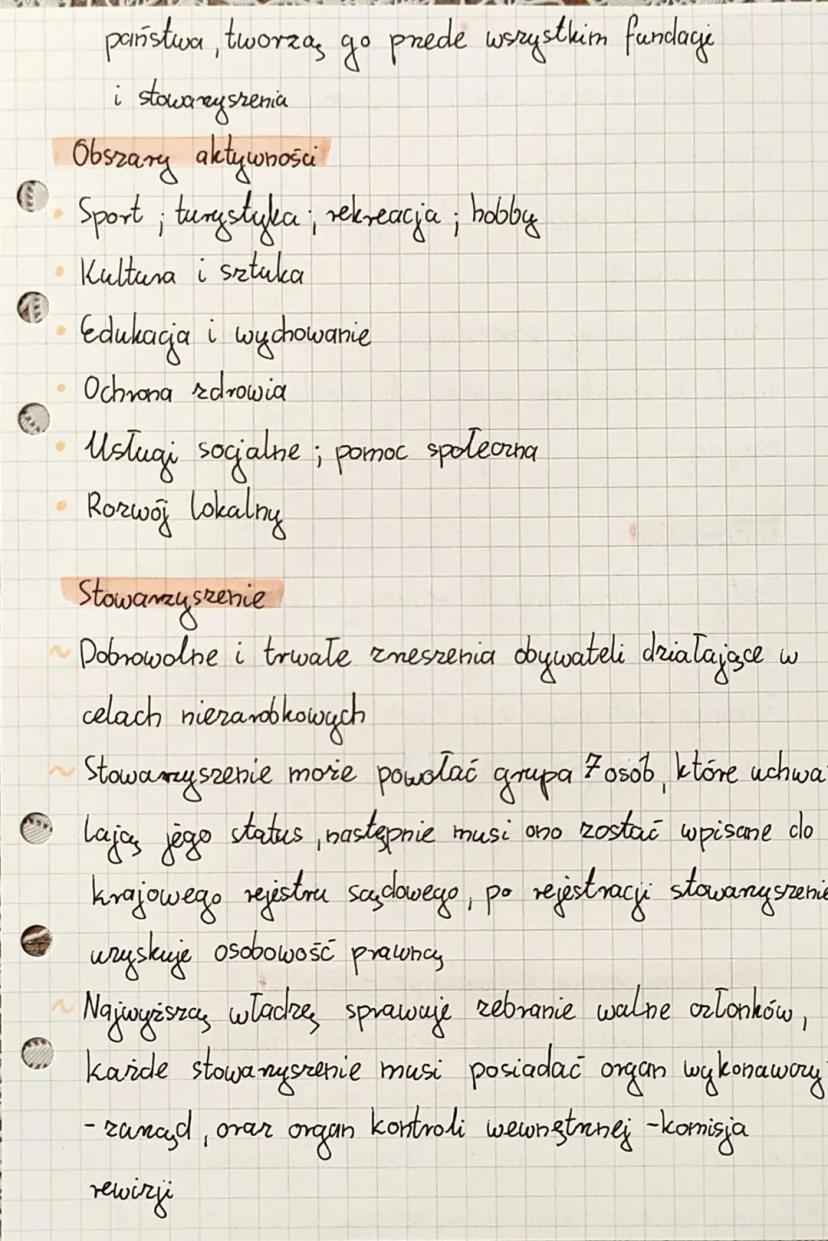 państwa, tworzą go przede wszystkim fundacje
i stowarzyszenia
Obszary aktywności
• Sport ; turystyka ; rekreacja ; hobby
• Kultura i sztuka
• Edukacja i wychowanie
• Ochrona zdrowia
• Usługi socjalne ; pomoc społeczna
• Rozwój lokalny
Stowarzyszenie
~ Dobrowolne i trwałe zrzeszenia obywateli działające w
celach niezarobkowych
~ Stowarzyszenie może powołać grupa 7 osób, które uchwa
lają jego status, następnie musi ono zostać wpisane do
krajowego rejestru sądowego, po rejestracji stowarzyszenie
uzyskuje osobowość prawną
~ Najwyższą władzę sprawuje zebranie walne członków,
każde stowarzyszenie musi posiadać organ wykonawczy
- zarząd, oraz organ kontroli wewnętrznej - komisja
rewizji